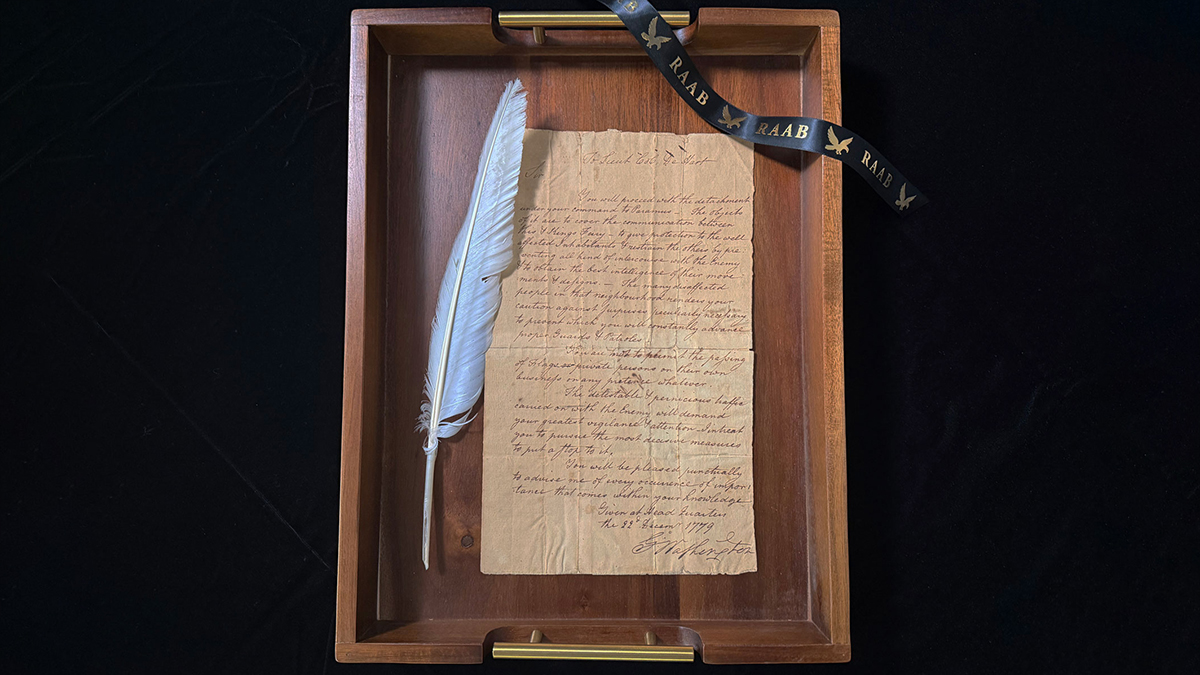 RAAB
RAAB
RAAB
To Lieut Col. De Hart
Sir
You will proceed with the detachment
under your command to Paramus — The objects
of it are to cover the communication between
this & Kings Ferry — to give protection to the well
affected Inhabitants & restrain the others by pre
venting all kind of intercourse with the Enemy
& to obtain the best intelligence of their move
ments & designs — The many disaffected
people in that neighbourhood renders your
caution against surprises peculiarly necessary
to prevent which you will constantly advance
proper Guards & Patroles.
You are not to permit the passing
of Flags or private persons on their own
business on any pretence whatever.
The detestable & pernicious traffic
carried on with the Enemy will demand
your greatest vigilance & attention I intreat
you to pursue the most decisive measures
to put a stop to it.
You will be pleased punctually
to advise me of every occurrence of impor
tance that comes within your knowledge
Given at Head Quarters
the 22d Decemr 1779
G Washington